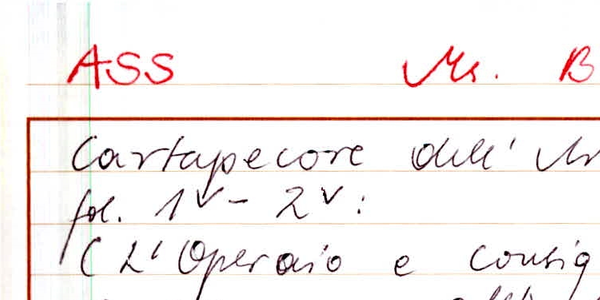 ASS Ms. B
Cartapecore dell'
fol. 1v - 2v:
(L'Operaio e consig